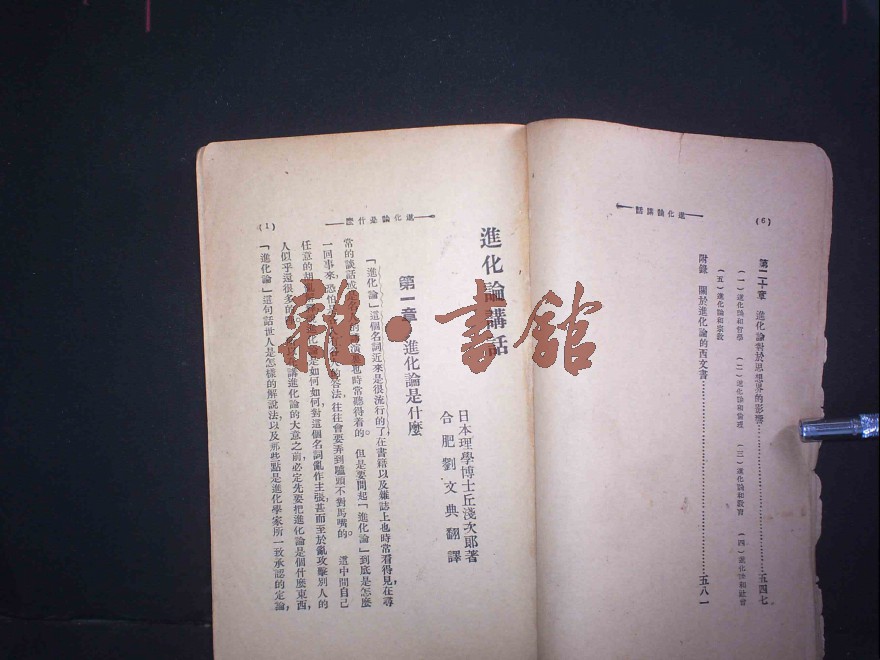 (6)
進化論講話
第二十章 進化論對於思想界的影響……五四七
（一）進化論和哲學 （二）進化論和倫理 （三）進化論和教育 （四）進化論和社會
（五）進化論和宗教
附錄 關於進化論的西文書……五八一
進化論講話
日本理學博士丘淺次郎著
合肥劉文典翻譯
第一章 進化論是什麼
進化論是什麼
(1)
「進化論」這個名詞近來是很流行的了在書籍以及雜誌上也時常看得見，在尋
常的談話或是 演 也時常聽得着的。但是要問起「進化論」到底是怎麼
一回事來，恐怕 的答法，往往會要弄到驢頭不對馬嘴的。這中間自己
任意的胡 進化論是如何如何，對這個名詞亂作主張，甚而至於亂攻擊別人的
人似乎還很多的 講進化論的大意之前，必定先要把進化論是個什麼東西，
「進化論」這句話世人是怎樣的解說法，以及那些點是進化學家所一致承認的定論，
雜·書館